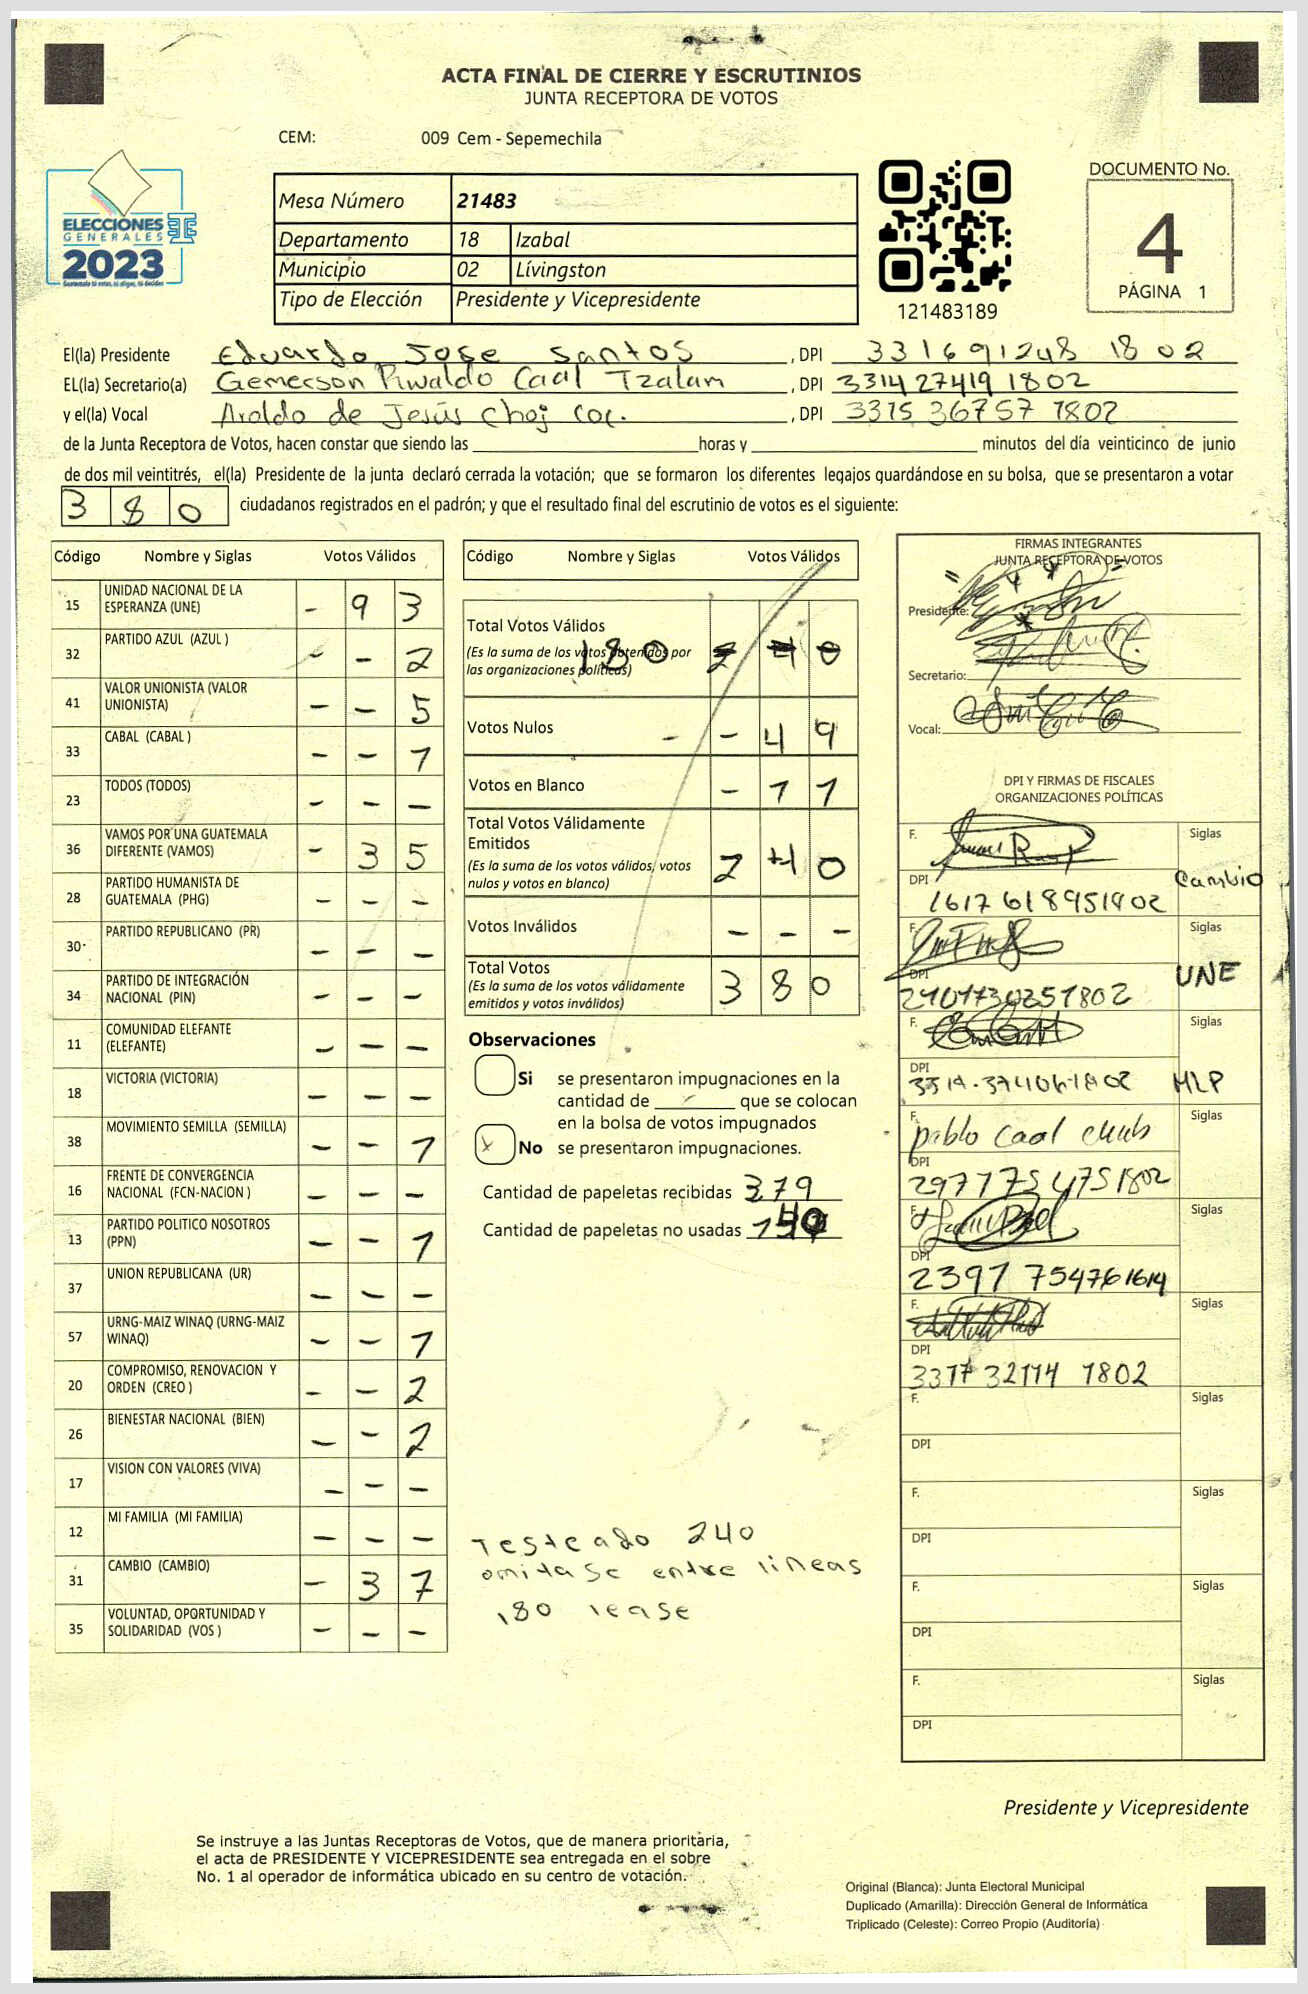 ACTA FINAL DE CIERRE Y ESCRUTINIOS
JUNTA RECEPTORA DE VOTOS
CEM: 009 Cem - Sepemechila
ELECCIONES
GENERALES
2023
Mesa Número 21483
Departamento 18 Izabal
Municipio 02 Lívingston
Tipo de Elección Presidente y Vicepresidente
121483189
DOCUMENTO No.
4
PÁGINA 1
El(la) Presidente Eduardo Jose Santos, DPI 331691248 1802
EL(la) Secretario(a) Gemerson Riwaldo Caal Tzalam, DPI 3314 27419 1802
y el(la) Vocal Aroldo de Jesús Choj Coc., DPI 3315 36757 1802
de la Junta Receptora de Votos, hacen constar que siendo las horas y minutos del día veinticinco de junio
de dos mil veintitrés, el(la) Presidente de la junta declaró cerrada la votación; que se formaron los diferentes legajos guardándose en su bolsa, que se presentaron a votar
3 8 0 ciudadanos registrados en el padrón; y que el resultado final del escrutinio de votos es el siguiente:
Código Nombre y Siglas Votos Válidos
15 UNIDAD NACIONAL DE LA ESPERANZA (UNE) - 9 3
32 PARTIDO AZUL (AZUL ) - - 2
41 VALOR UNIONISTA (VALOR UNIONISTA) - - 5
33 CABAL (CABAL ) - - 1
23 TODOS (TODOS) - - -
36 VAMOS POR UNA GUATEMALA DIFERENTE (VAMOS) - 3 5
28 PARTIDO HUMANISTA DE GUATEMALA (PHG) - - -
30 PARTIDO REPUBLICANO (PR) - - -
34 PARTIDO DE INTEGRACIÓN NACIONAL (PIN) - - -
11 COMUNIDAD ELEFANTE (ELEFANTE) - - -
18 VICTORIA (VICTORIA) - - -
38 MOVIMIENTO SEMILLA (SEMILLA) - - 1
16 FRENTE DE CONVERGENCIA NACIONAL (FCN-NACION ) - - -
13 PARTIDO POLITICO NOSOTROS (PPN) - - 1
37 UNION REPUBLICANA (UR) - - -
57 URNG-MAIZ WINAQ (URNG-MAIZ WINAQ) - - 1
20 COMPROMISO, RENOVACION Y ORDEN (CREO ) - - 2
26 BIENESTAR NACIONAL (BIEN) - - 2
17 VISION CON VALORES (VIVA) - - -
12 MI FAMILIA (MI FAMILIA) - - -
31 CAMBIO (CAMBIO) - 3 7
35 VOLUNTAD, OPORTUNIDAD Y SOLIDARIDAD (VOS ) - - -
Código Nombre y Siglas Votos Válidos
Total Votos Válidos
(Es la suma de los votos obtenidos por
las organizaciones políticas)
180 2 4 0
Votos Nulos - - 4 9
Votos en Blanco - 1 1
Total Votos Válidamente
Emitidos
(Es la suma de los votos válidos, votos
nulos y votos en blanco)
2 4 0
Votos Inválidos - - -
Total Votos
(Es la suma de los votos válidamente
emitidos y votos inválidos)
3 8 0
Observaciones
Si se presentaron impugnaciones en la
cantidad de que se colocan
en la bolsa de votos impugnados
X No se presentaron impugnaciones.
Cantidad de papeletas recibidas 379
Cantidad de papeletas no usadas
Testeado 240
omitase entre lineas
180 lease
FIRMAS INTEGRANTES
JUNTA RECEPTORA DE VOTOS
Presidente:
Secretario:
Vocal:
DPI Y FIRMAS DE FISCALES
ORGANIZACIONES POLÍTICAS
F. Siglas
DPI 1617 618951802 Cambio
F. Siglas
DPI 2101730251802 UNE
F. Siglas
DPI MLP
F. pablo Caal chub Siglas
DPI 2971754751802
F. Siglas
DPI 2397 754761614
F. Siglas
DPI 3317 32114 1802
F. Siglas
DPI
F. Siglas
DPI
F. Siglas
DPI
F. Siglas
DPI
Presidente y Vicepresidente
Se instruye a las Juntas Receptoras de Votos, que de manera prioritaria,
el acta de PRESIDENTE Y VICEPRESIDENTE sea entregada en el sobre
No. 1 al operador de informática ubicado en su centro de votación.
Original (Blanca): Junta Electoral Municipal
Duplicado (Amarilla): Dirección General de Informática
Triplicado (Celeste): Correo Propio (Auditoría)